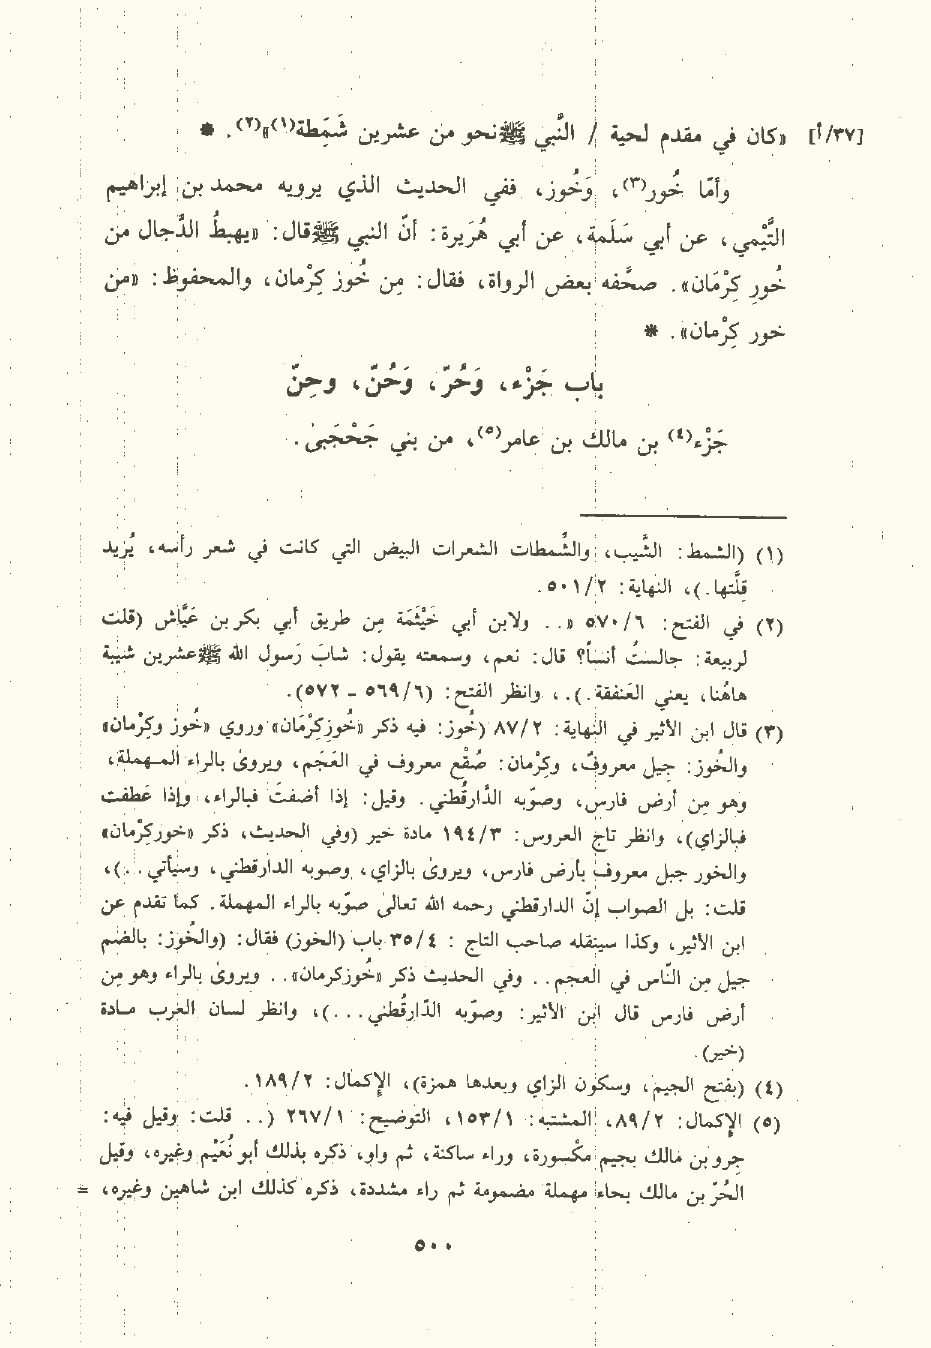 [٣٧/أ] «كان في مقدم لحية / النَّبي ﷺ نحو من عشرين شَمَطة(١)»(٢). *
وأمّا خُور(٣)، وَخُوز، ففي الحديث الذي يرويه محمد بن إبراهيم
التَّيْمي، عن أبي سَلَمة، عن أبي هُرَيرة: أنّ النبي ﷺ قال: «يهبطُ الدَّجال من
خُورِ كِرْمَان». صحَّفه بعض الرواة، فقال: مِن خُوز كِرْمان، والمحفوظ: «من
خور كِرْمان». *
باب جَزْء، وَحُرّ، وَحُنّ، وحِنّ
جَزْء(٤) بن مالك بن عامر(٥)، من بني جَحْجَبىٰ.
(١) (الشمط: الشَّيب، والشَّمطات الشعرات البيض التي كانت في شعر رأسه، يُريد
قلَّتها.)، النهاية: ٥٠١/٢.
(٢) في الفتح: ٥٧٠/٦ «.. ولابن أبي خَيْثَمَة مِن طريق أبي بكر بن عَيَّاش (قلت
لربيعة: جالستُ أنساً؟ قال: نعم، وسمعته يقول: شابَ رَسول الله ﷺ عشرين شيبة
هاهُنا، يعني العَنفقة.).، وانظر الفتح: (٥٦٩/٦ ـ ٥٧٢).
(٣) قال ابن الأثير في النهاية: ٨٧/٢ (خُوز: فيه ذكر «خُوزِكِرْمَان» وروي «خُوز وكِرْمان»
والخُوز: جِيل معروفٌ، وكِرْمان: صُقْع معروف في العَجَم، ويروىٰ بالراء المـهملة،
وهو مِن أرض فارس، وصوّبه الدَّارقُطني. وقيل: إذا أضفتَ فبالراء، وإذا عَطفت
فبالزاي)، وانظر تاج العروس: ١٩٤/٣ مادة خير (وفي الحديث، ذكر «خوركِرْمان»
والخور جبل معروف بأرض فارس، ويروىٰ بالزاي، وصوبه الدارقطني، وسيأتي..)،
قلت: بل الصواب إنّ الدارقطني رحمه الله تعالىٰ صوّبه بالراء المهملة. كما تقدم عن
ابن الأثير، وكذا سينقله صاحب التاج : ٣٥/٤ باب (الخوز) فقال: (والخُوز: بالضم
جيل مِن النَّاس في العجم.. وفي الحديث ذكر «خُوزكرمان».. ويروىٰ بالراء وهو مِن
أرض فارس قال ابن الأثير: وصوّبه الدّارقُطني...)، وانظر لسان العرب مـادة
(خير).
(٤) (بفتح الجيم، وسكون الزاي وبعدها همزة)، الإكمال: ١٨٩/٢.
(٥) الإكمال: ٨٩/٢، المشتبه: ١٥٣/١، التوضيح: ٢٦٧/١ (.. قلت: وقيل فيه:
جِرو بن مالك بجيم مكْسورة، وراء ساكنة، ثم واو، ذكره بذلك أبو نُعَيْم وغيره، وقيل
الحُرّ بن مالك بحاء مهملة مضمومة ثم راء مشددة، ذكره كذلك ابن شاهين وغيره، =
٥٠٠